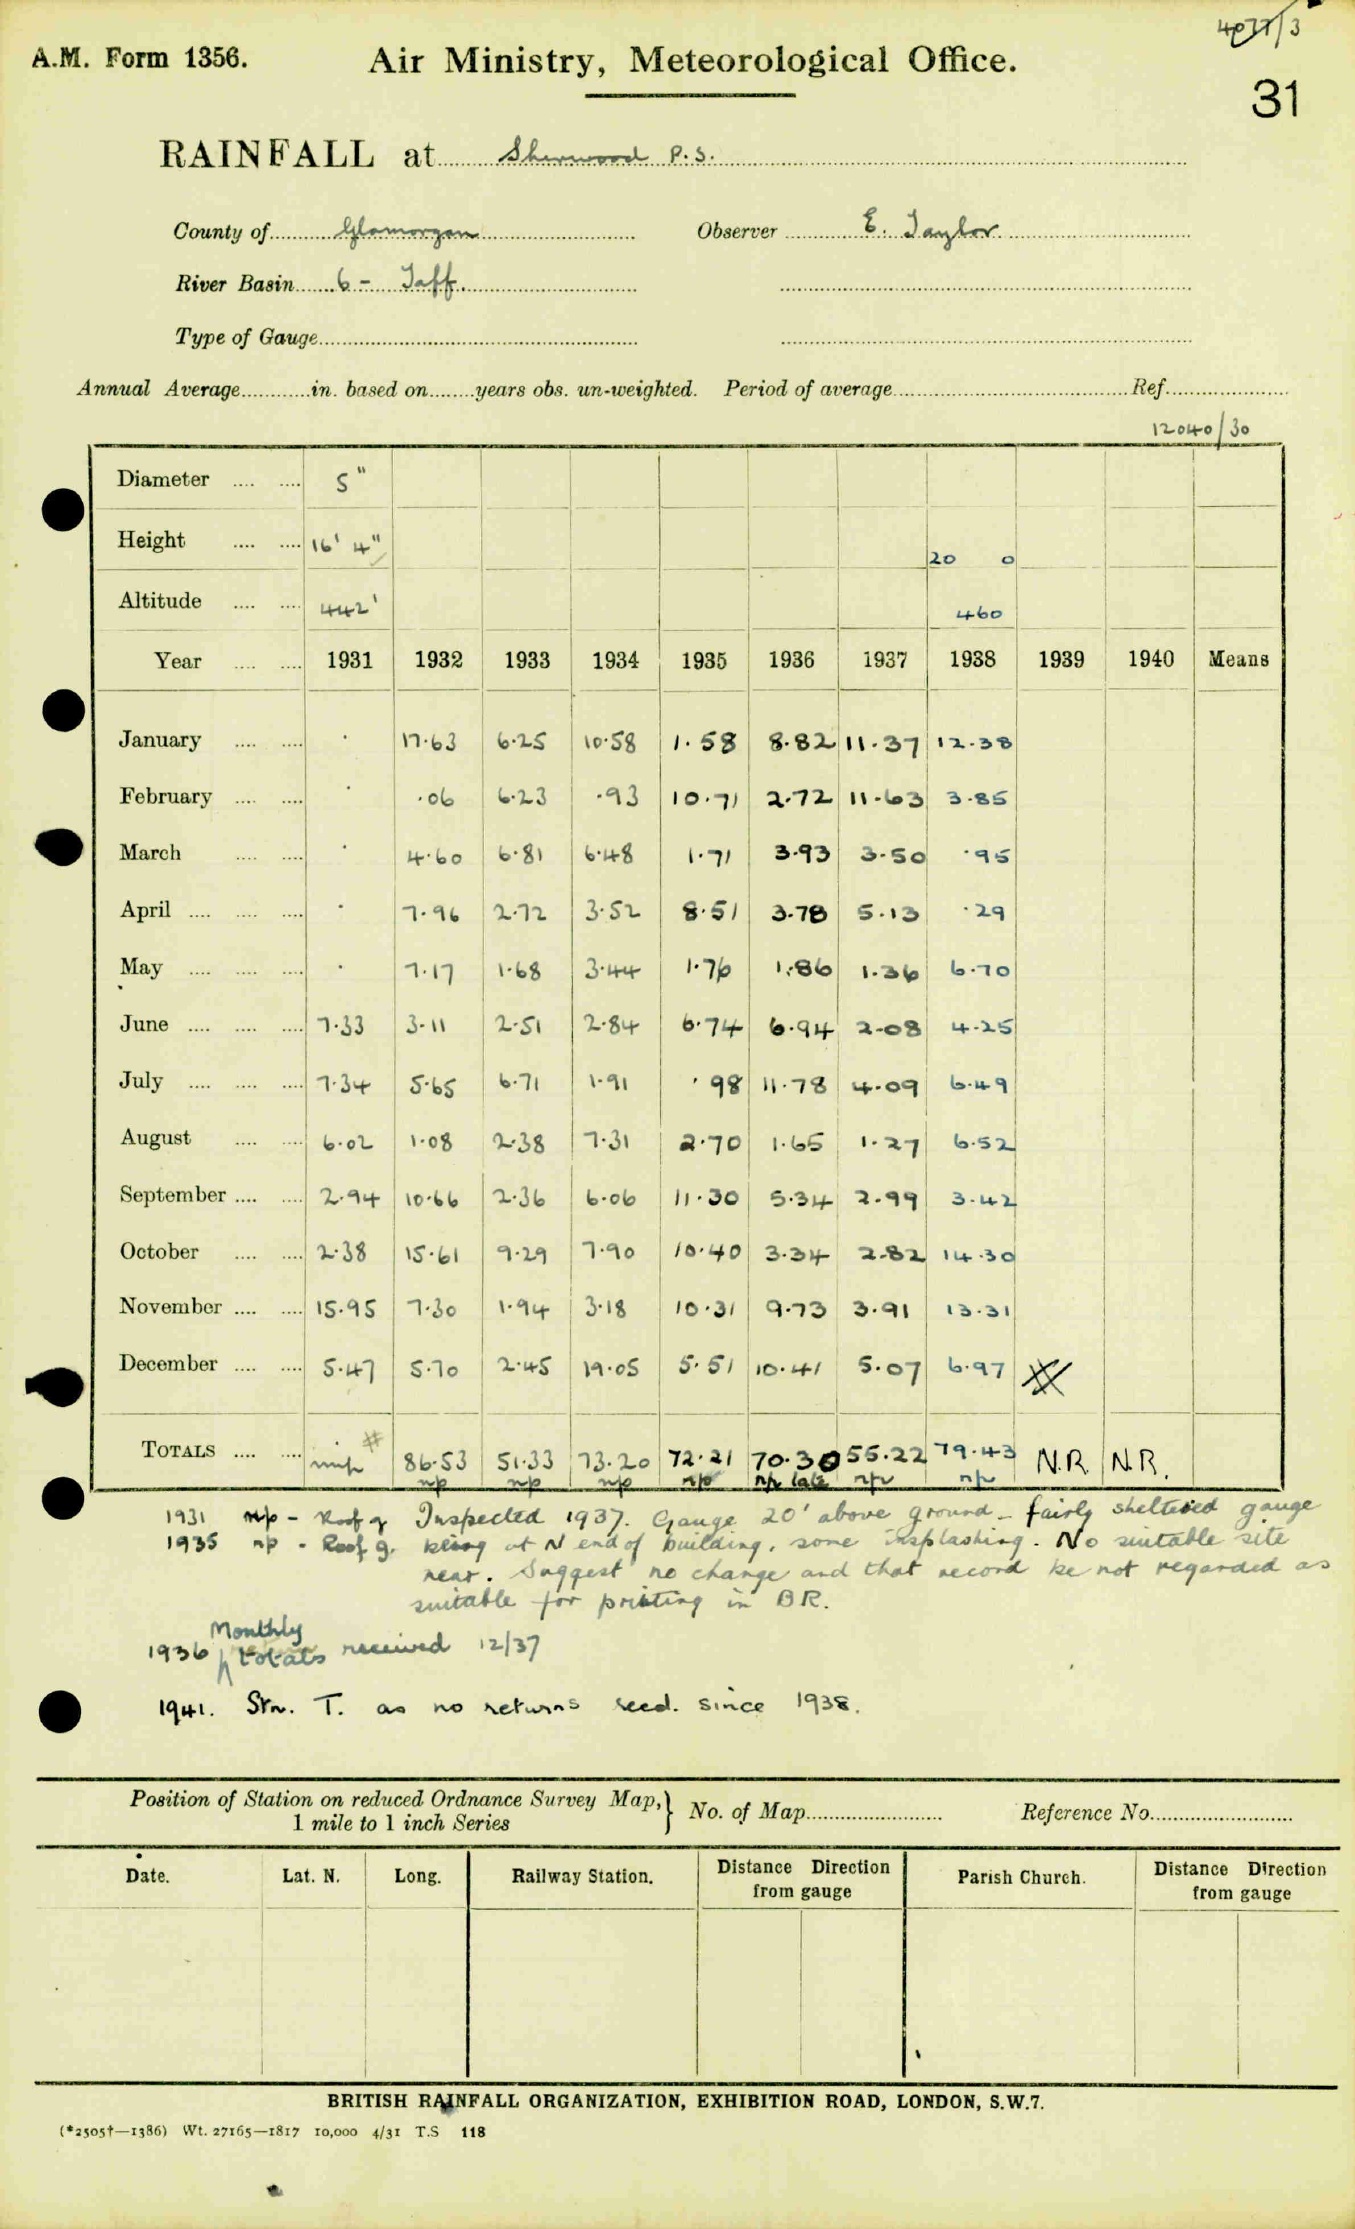 4077/3
A.M. Form 1356. Air Ministry, Meteorological Office.
31
RAINFALL at Sherwood P.S.
County of Glamorgan Observer E. Taylor
River Basin 6 - Taff.
Type of Gauge
Annual Average in. based on years obs. un-weighted. Period of average Ref.
12040/30
Diameter 5"
Height 16' 4" 20 0
Altitude 442' 460
Year 1931 1932 1933 1934 1935 1936 1937 1938 1939 1940 Means
January · 17.63 6.25 10.58 1.58 8.82 11.37 12.38
February · .06 6.23 .93 10.71 2.72 11.63 3.85
March · 4.60 6.81 6.48 1.71 3.93 3.50 .95
April · 7.96 2.72 3.52 8.51 3.78 5.13 .29
May · 7.17 1.68 3.44 1.76 1.86 1.36 6.70
June 7.33 3.11 2.51 2.84 6.74 6.94 2.08 4.25
July 7.34 5.65 6.71 1.91 .98 11.78 4.09 6.49
August 6.02 1.08 2.38 7.31 2.70 1.65 1.27 6.52
September 2.94 10.66 2.36 6.06 11.30 5.34 2.99 3.42
October 2.38 15.61 9.29 7.90 10.40 3.34 2.82 14.30
November 15.95 7.30 1.94 3.18 10.31 9.73 3.91 13.31
December 5.47 5.70 2.45 19.05 5.51 10.41 5.07 6.97
TOTALS 86.53 51.33 73.20 72.21 70.30 55.22 79.43 N.R. N.R.
n/p n/p n/p n/p n/p late n/p n/p
1931 n/p - Roof g Inspected 1937. Gauge 20' above ground - fairly sheltered gauge
1935 n/p - Roof g. being at N end of building, some insplashing. No suitable site
near. Suggest no change and that record be not regarded as
suitable for printing in BR.
Monthly
1936 totals received 12/37
1941. Stn. T. as no returns recd. since 1938.
Position of Station on reduced Ordnance Survey Map, 1 mile to 1 inch Series } No. of Map Reference No.
Date. Lat. N. Long. Railway Station. Distance Direction from gauge Parish Church. Distance Direction from gauge
BRITISH RAINFALL ORGANIZATION, EXHIBITION ROAD, LONDON, S.W.7.
(*2505†—1386) Wt. 27165—1817 10,000 4/31 T.S 118